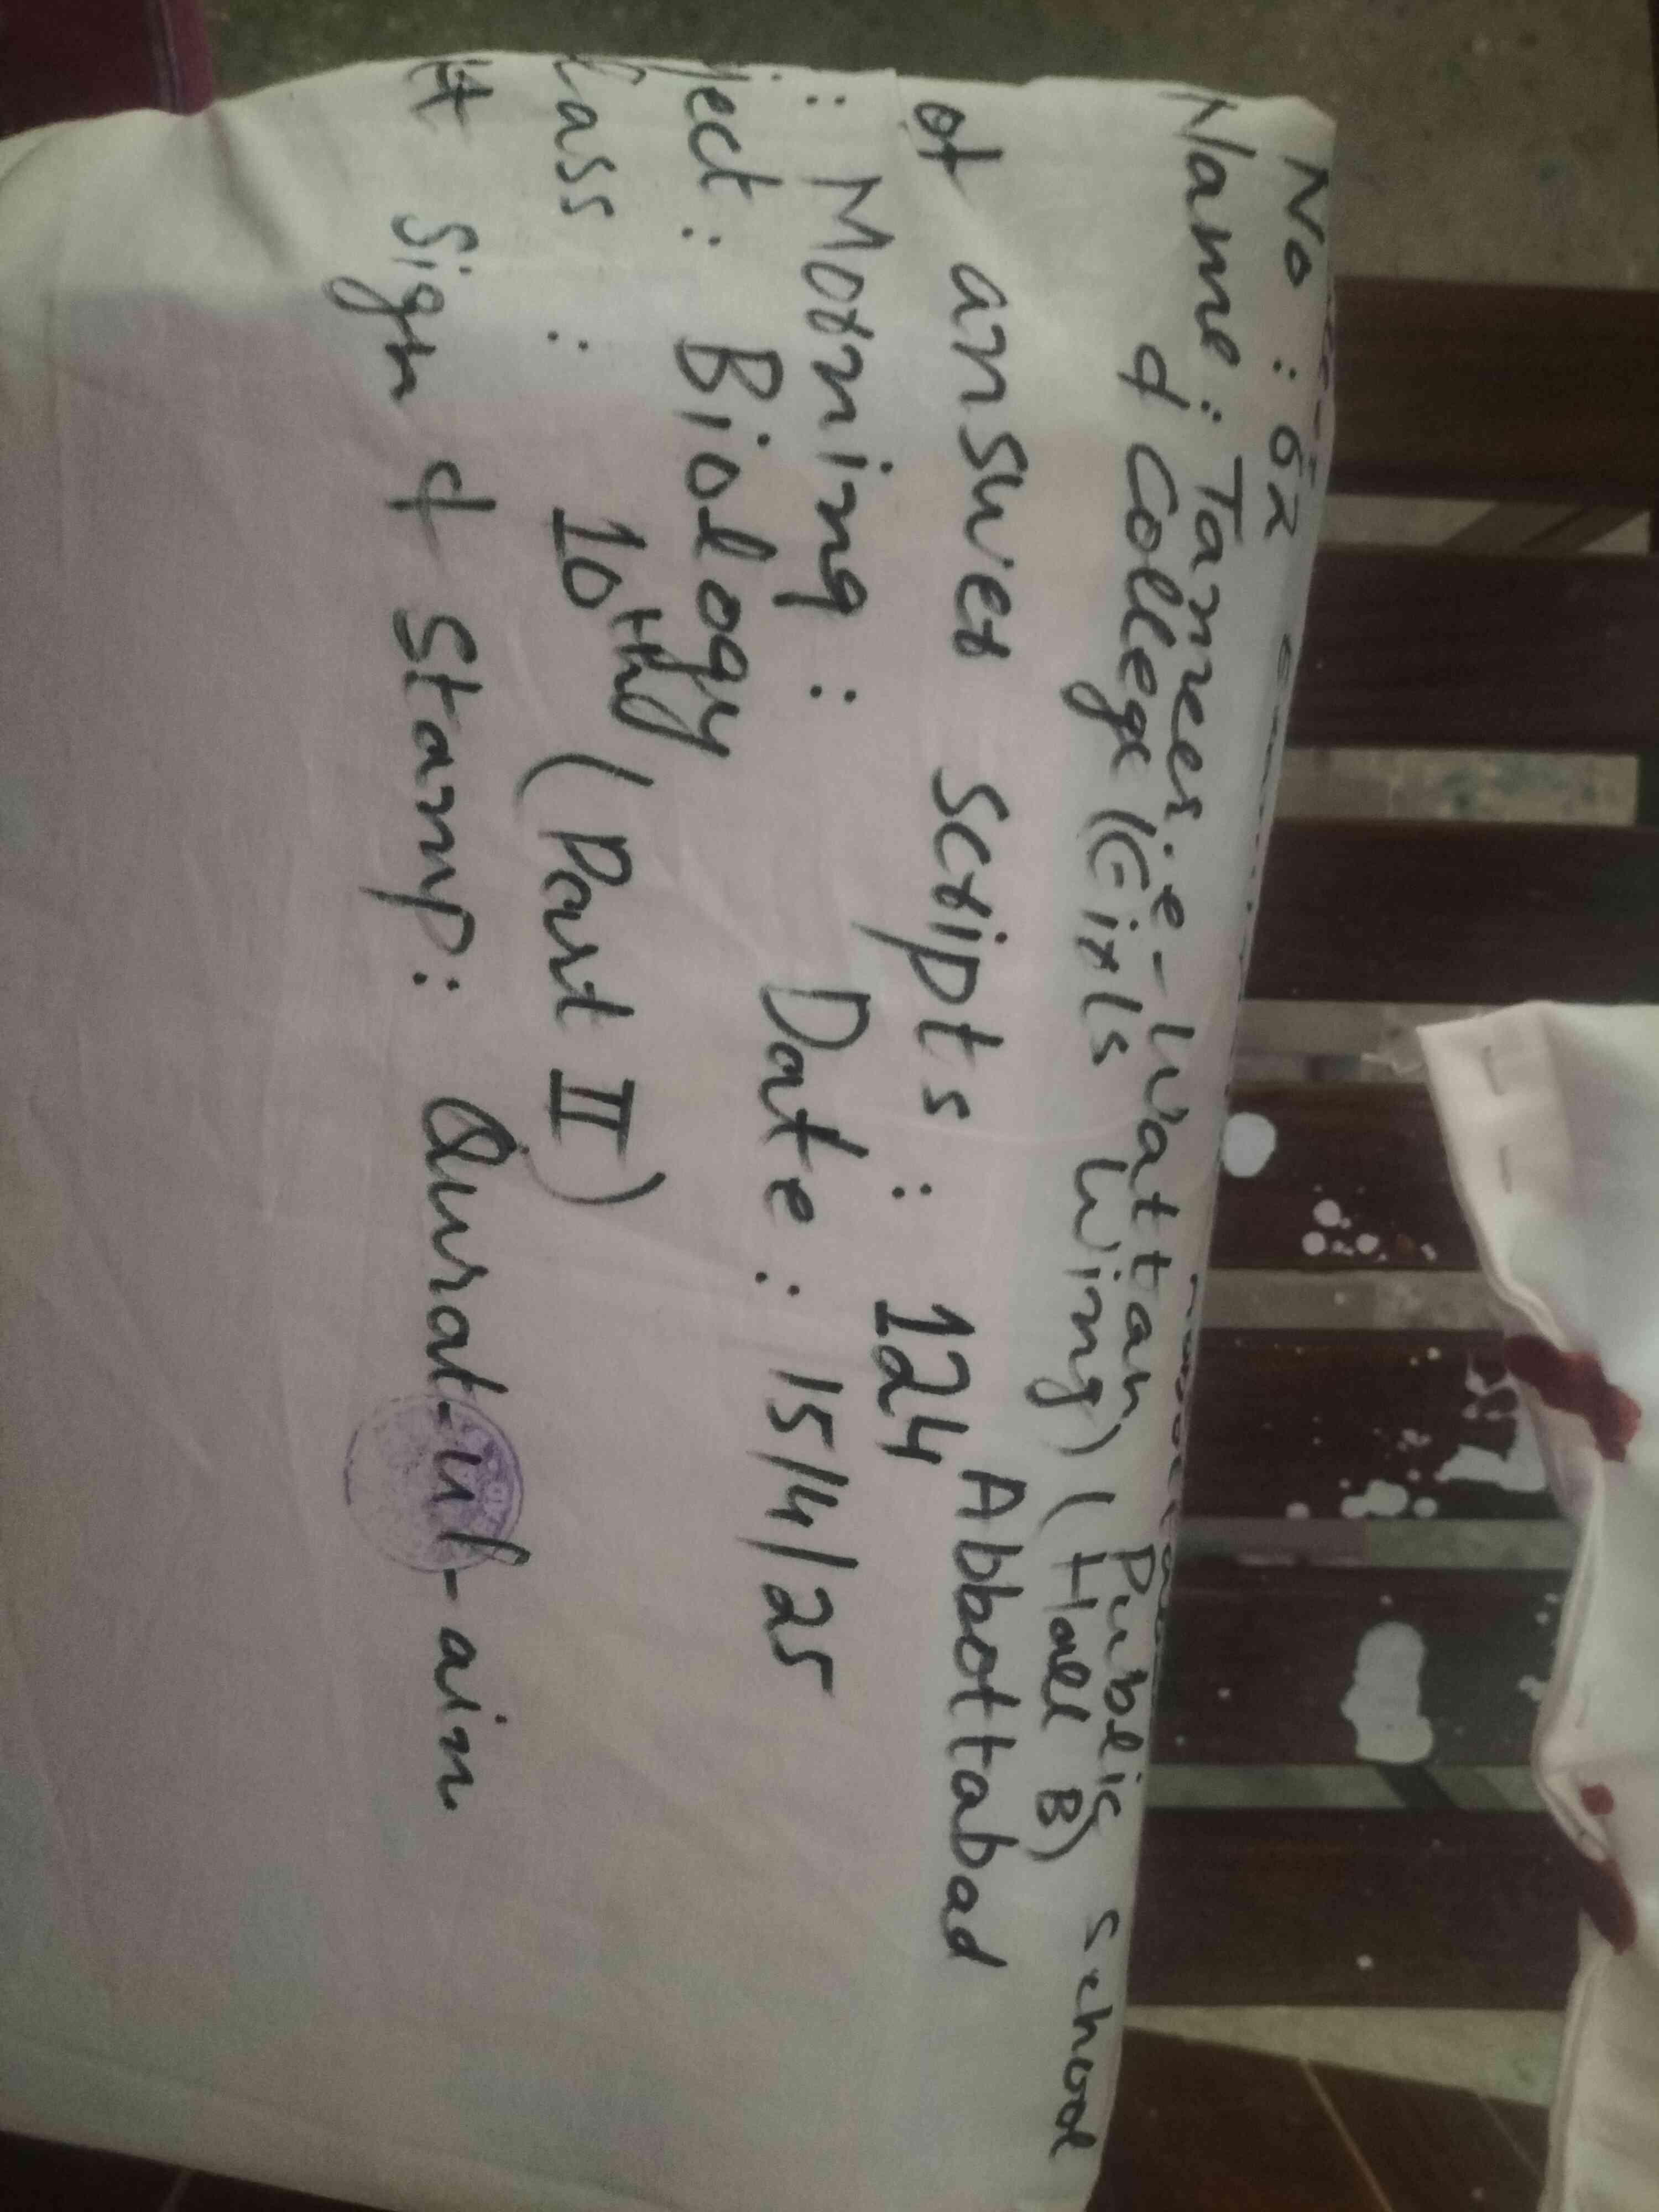 No : 62
Name : Tameer-e-Wattan Public School
& College (Girls Wing) (Hall B)
Abbottabad
of answer scripts : 124
: Morning : Date : 15/4/25
ject : Biology
lass : 10th (Part II)
Sign & Stamp : Qurat-ul-ain